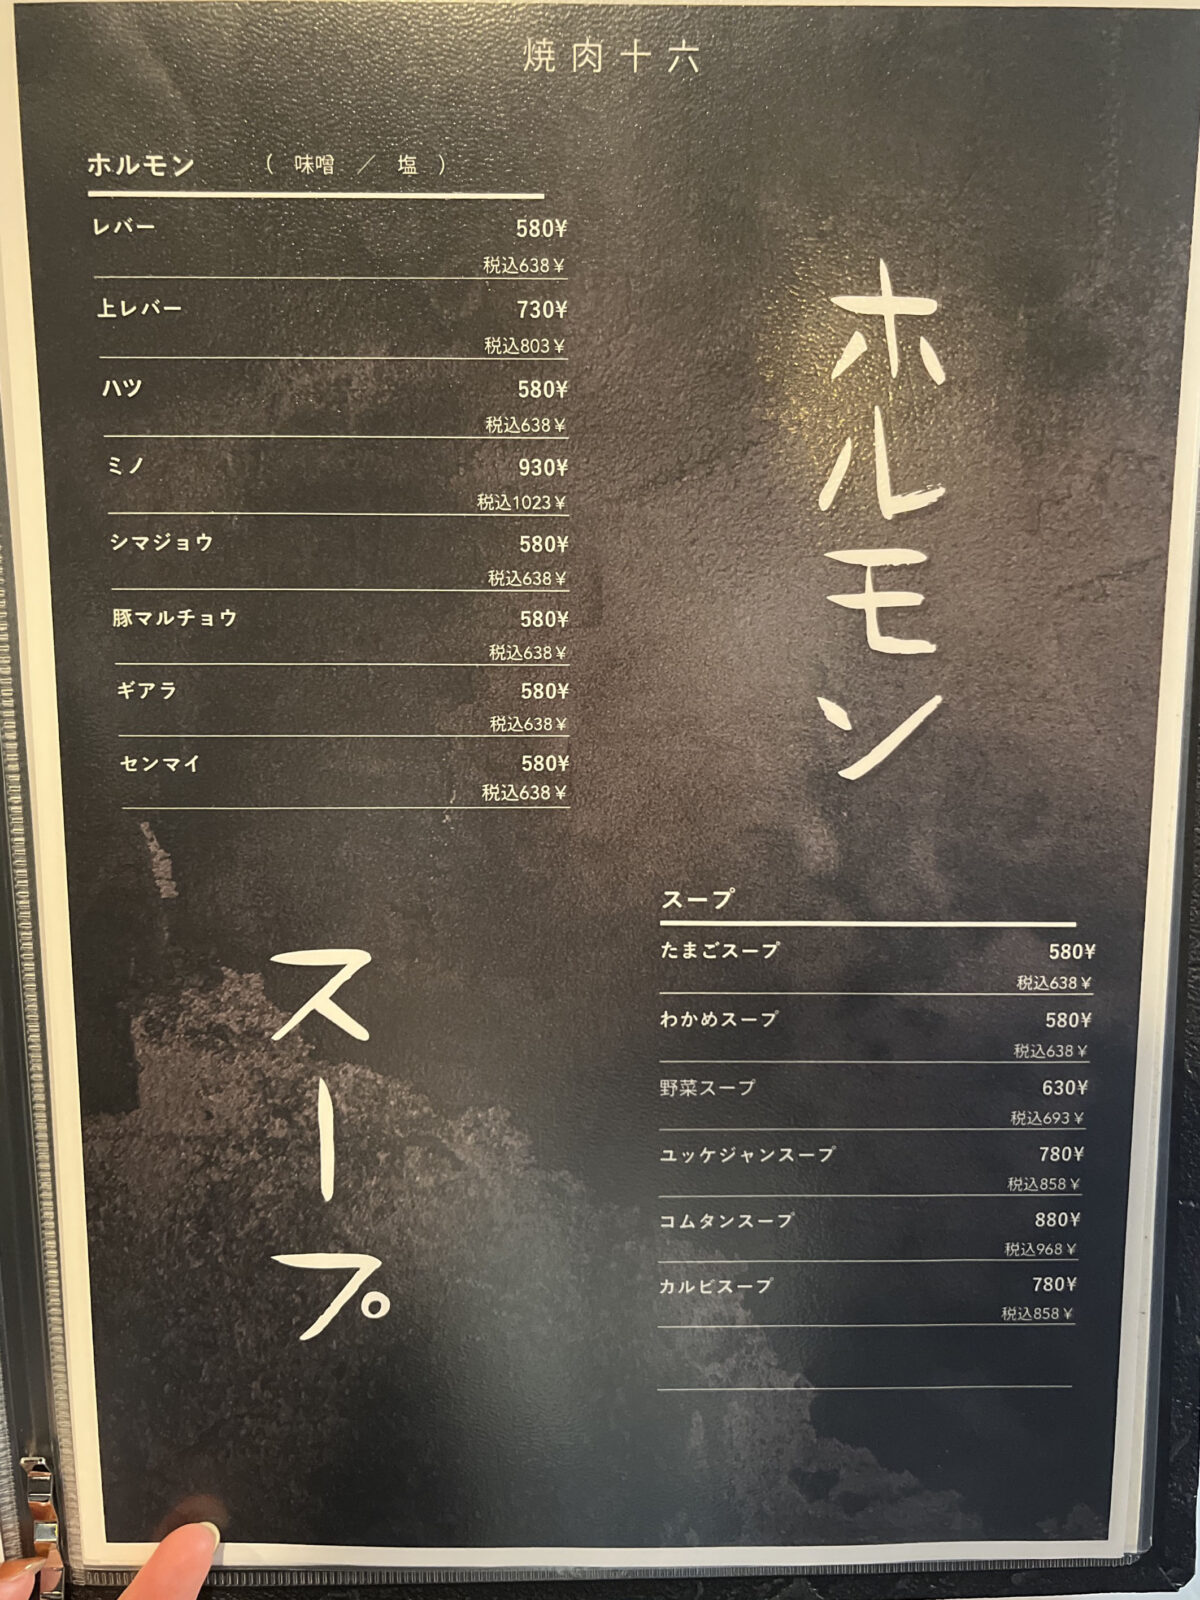 焼肉十六
ホルモン ( 味噌 ／ 塩 )
レバー 580¥
税込638￥
上レバー 730¥
税込803￥
ハツ 580¥
税込638￥
ミノ 930¥
税込1023￥
シマジョウ 580¥
税込638￥
豚マルチョウ 580¥
税込638￥
ギアラ 580¥
税込638￥
センマイ 580¥
税込638￥
ホルモン
スープ
スープ
たまごスープ 580¥
税込638￥
わかめスープ 580¥
税込638￥
野菜スープ 630¥
税込693￥
ユッケジャンスープ 780¥
税込858￥
コムタンスープ 880¥
税込968￥
カルビスープ 780¥
税込858￥